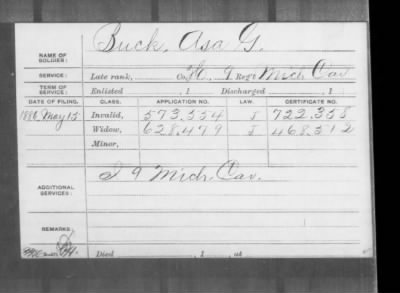 NAME OF SOLDIER: Buck, Asa G.
SERVICE: Late rank, Co. H, 9 Reg't Mich Cav
TERM OF SERVICE: Enlisted , 1 Discharged , 1
DATE OF FILING. CLASS. APPLICATION NO. LAW. CERTIFICATE NO.
1886, May 15 Invalid, 573.554 8 722.358
Widow, 628.479 8 468.512
Minor,
ADDITIONAL SERVICES: I 9 Mich. Cav.
REMARKS:
Died , 1 , at